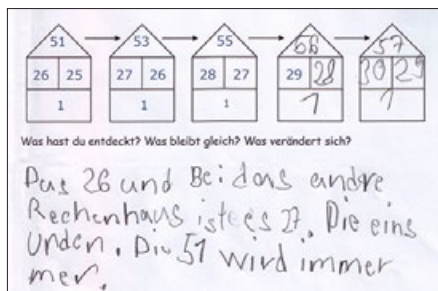 51 53 55 56 57
26 25 27 26 28 27 29 28 30 29
1 1 1 1 1
Was hast du entdeckt? Was bleibt gleich? Was verändert sich?
Das 26 und Bei das andre
Rechenhaus ist es 27. Die eins
Unden. Die 51 wird immer
mer.